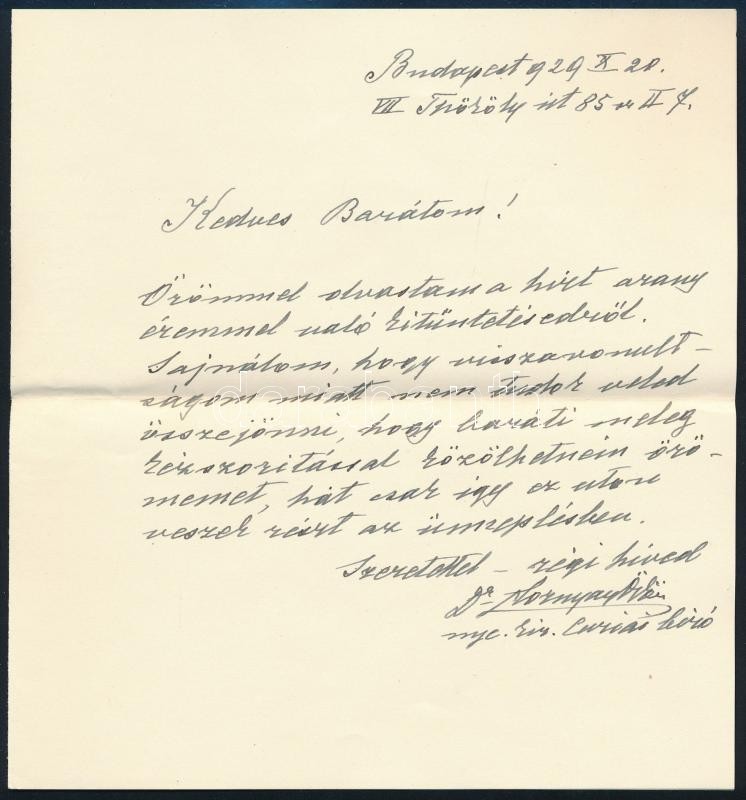 Budapest 929 X 20.
VII Thököly út 85 sz II 7.
Kedves Barátom!
Örömmel olvastam a hírt arany
éremmel való kitüntetésedről.
Sajnálom, hogy visszavonult-
ságom miatt nem tudok veled
összejönni, hogy baráti meleg
kézszoritással közölhetném örö-
memet, hát csak igy ez uton
veszek részt az ünneplésben.
Szeretettel – régi hived
Dr
nyc. kir. Curiai biró